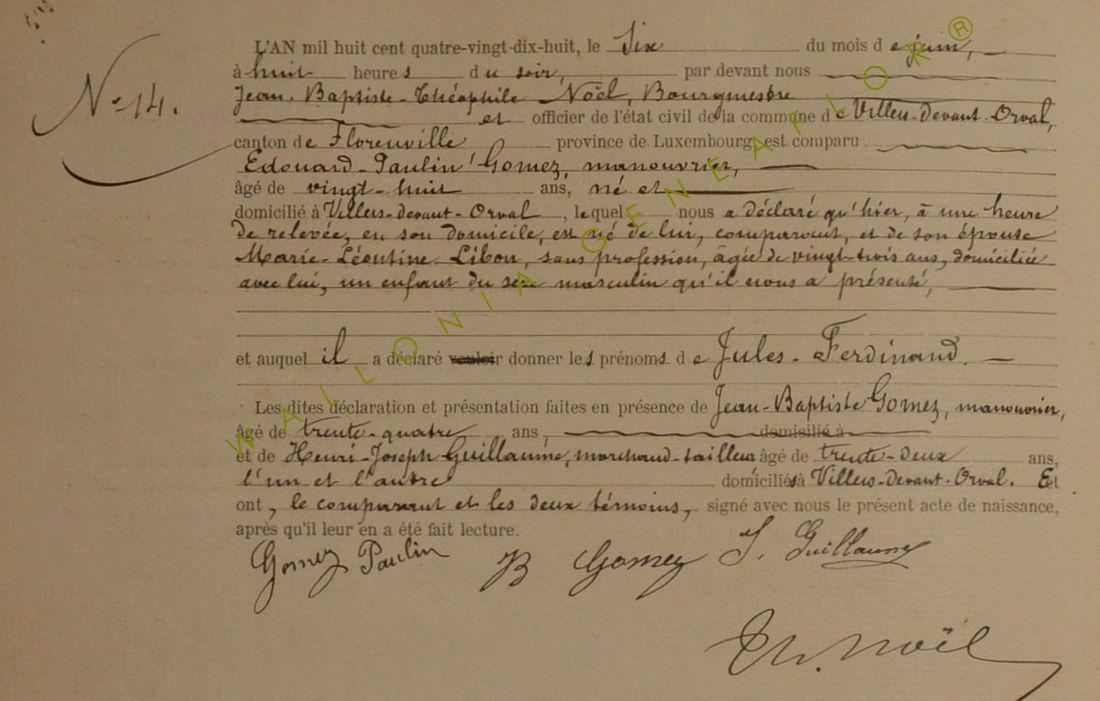 L'AN mil huit cent quatre-vingt-dix-huit, le Six du mois de juin,
à huit heures du soir, par devant nous
N° 14.
Jean-Baptiste-Théophile Noël, Bourgmestre
et officier de l'état civil de la commune de Villers-Devant-Orval,
canton de Florenville province de Luxembourg est comparu
Edouard-Paulin Gomez, manouvrier,
âgé de vingt-huit ans, né et
domicilié à Villers-devant-Orval, lequel nous a déclaré qu'hier, à une heure
de relevée, en son domicile, est né de lui, comparant, et de son épouse
Marie-Léontine Libon, sans profession, âgée de vingt-trois ans, domiciliée
avec lui, un enfant du sexe masculin qu'il nous a présenté,
et auquel il a déclaré vouloir donner les prénoms de Jules-Ferdinand.
Les dites déclaration et présentation faites en présence de Jean-Baptiste Gomez, manouvrier,
âgé de trente-quatre ans, domicilié à
et de Henri-Joseph Guillaume, marchand-tailleur âgé de trente-deux ans,
l'un et l'autre domiciliés à Villers-Devant-Orval. Et
ont, le comparant et les deux témoins, signé avec nous le présent acte de naissance,
après qu'il leur en a été fait lecture.
Gomez Paulin JB Gomez J. Guillaume
Th. Noël
WALLONIA GENEAPLOR®